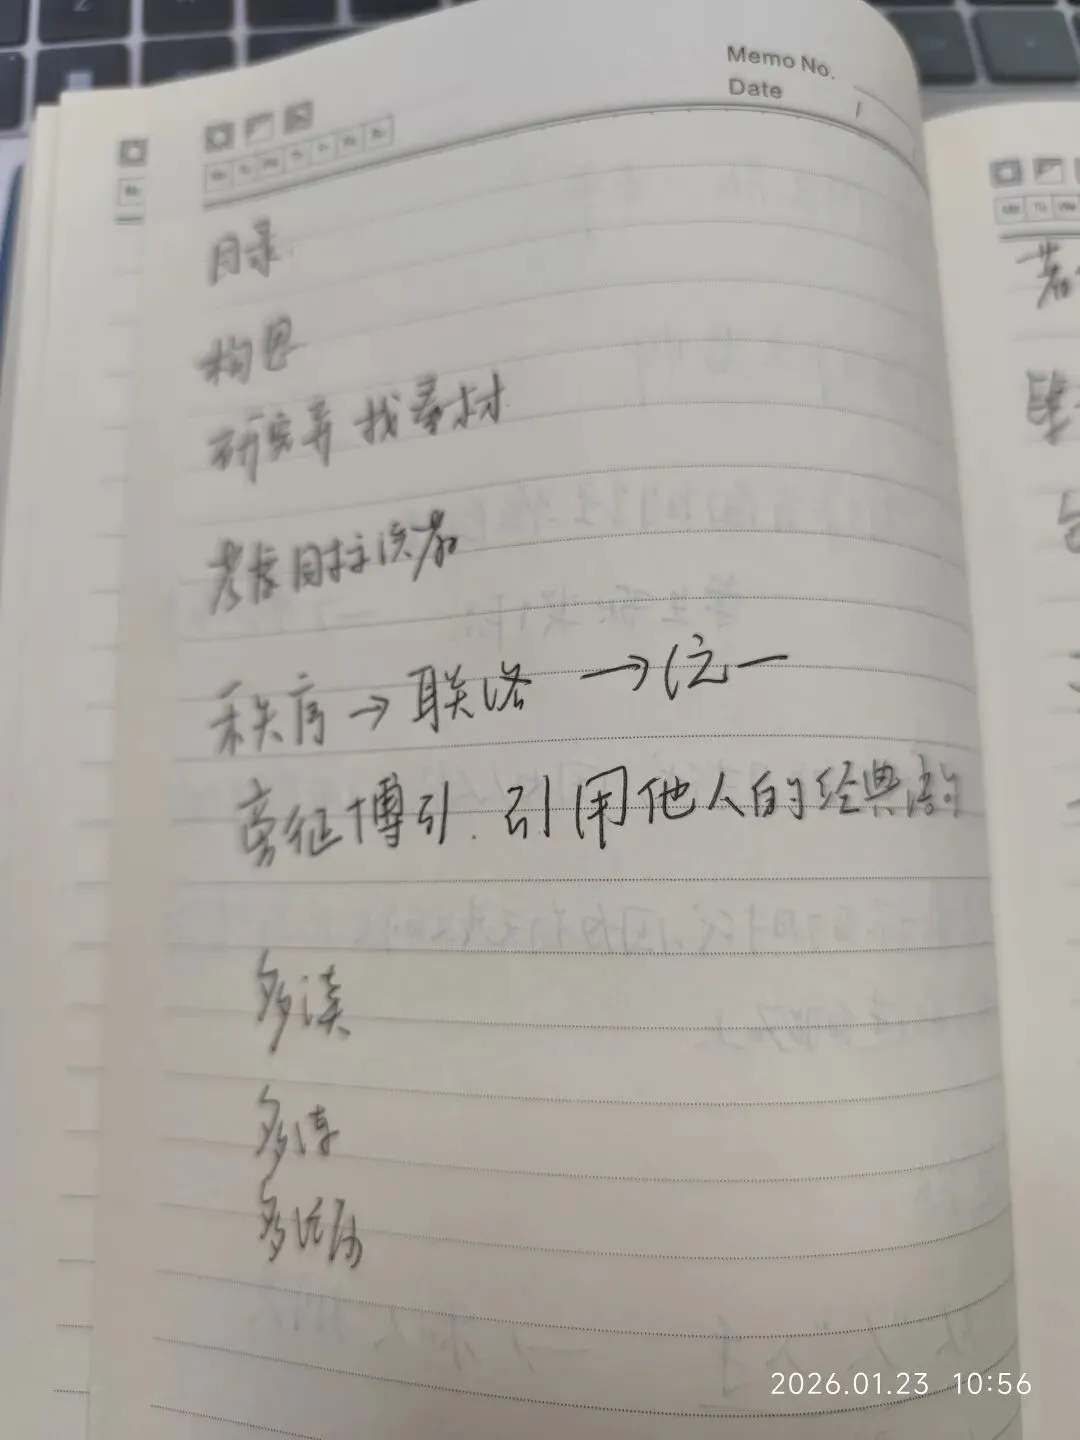 Memo No.
Date
目录
构思
研究并找素材
考虑目标读者
秩序→联络→统一
旁征博引.引用他人的经典语句
多读
多
多
2026.01.23 10:56